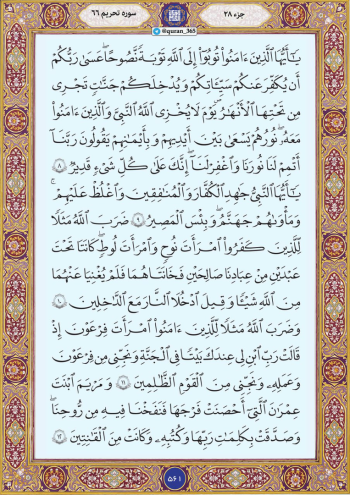 جزء ۲۸
@quran_365
سوره تحریم ۶۶
يَـٰٓأَيُّهَا ٱلَّذِينَ ءَامَنُوا۟ تُوبُوٓا۟ إِلَى ٱللَّهِ تَوْبَةً نَّصُوحًا عَسَىٰ رَبُّكُمْ
أَن يُكَفِّرَ عَنكُمْ سَيِّـَٔاتِكُمْ وَيُدْخِلَكُمْ جَنَّـٰتٍ تَجْرِى
مِن تَحْتِهَا ٱلْأَنْهَـٰرُ يَوْمَ لَا يُخْزِى ٱللَّهُ ٱلنَّبِىَّ وَٱلَّذِينَ ءَامَنُوا۟
مَعَهُۥ نُورُهُمْ يَسْعَىٰ بَيْنَ أَيْدِيهِمْ وَبِأَيْمَـٰنِهِمْ يَقُولُونَ رَبَّنَآ
أَتْمِمْ لَنَا نُورَنَا وَٱغْفِرْ لَنَآ إِنَّكَ عَلَىٰ كُلِّ شَىْءٍ قَدِيرٌ ۸
يَـٰٓأَيُّهَا ٱلنَّبِىُّ جَـٰهِدِ ٱلْكُفَّارَ وَٱلْمُنَـٰفِقِينَ وَٱغْلُظْ عَلَيْهِمْ ۚ
وَمَأْوَىٰهُمْ جَهَنَّمُ وَبِئْسَ ٱلْمَصِيرُ ۹ ضَرَبَ ٱللَّهُ مَثَلًا
لِّلَّذِينَ كَفَرُوا۟ ٱمْرَأَتَ نُوحٍ وَٱمْرَأَتَ لُوطٍ كَانَتَا تَحْتَ
عَبْدَيْنِ مِنْ عِبَادِنَا صَـٰلِحَيْنِ فَخَانَتَاهُمَا فَلَمْ يُغْنِيَا عَنْهُمَا
مِنَ ٱللَّهِ شَيْـًٔا وَقِيلَ ٱدْخُلَا ٱلنَّارَ مَعَ ٱلدَّٰخِلِينَ ۱۰
وَضَرَبَ ٱللَّهُ مَثَلًا لِّلَّذِينَ ءَامَنُوا۟ ٱمْرَأَتَ فِرْعَوْنَ إِذْ
قَالَتْ رَبِّ ٱبْنِ لِى عِندَكَ بَيْتًا فِى ٱلْجَنَّةِ وَنَجِّنِى مِن فِرْعَوْنَ
وَعَمَلِهِۦ وَنَجِّنِى مِنَ ٱلْقَوْمِ ٱلظَّـٰلِمِينَ ۱۱ وَمَرْيَمَ ٱبْنَتَ
عِمْرَٰنَ ٱلَّتِىٓ أَحْصَنَتْ فَرْجَهَا فَنَفَخْنَا فِيهِ مِن رُّوحِنَا
وَصَدَّقَتْ بِكَلِمَـٰتِ رَبِّهَا وَكُتُبِهِۦ وَكَانَتْ مِنَ ٱلْقَـٰنِتِينَ ۱۲
۵۶۱